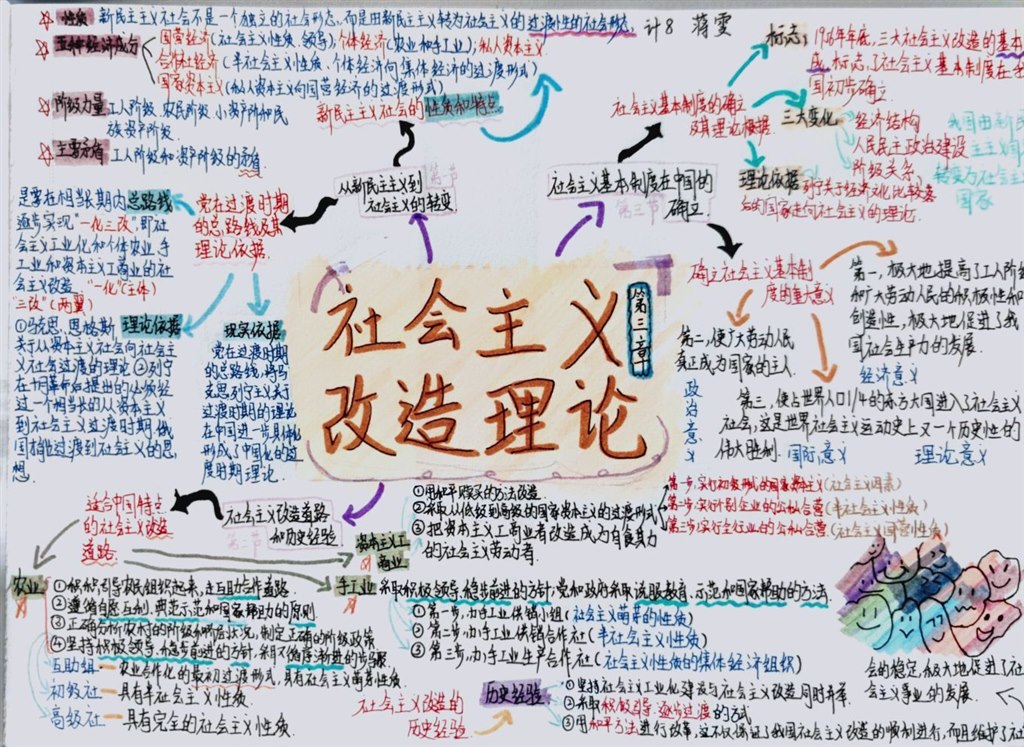 性质 新民主主义社会不是一个独立的社会形态,而是由新民主主义转为社会主义的过渡性的社会形态.
计8 蒋雯
五种经济成分
国营经济(社会主义性质、领导),个体经济(农业和手工业);私人资本主义
合作社经济(半社会主义性质、个体经济向集体经济的过渡形式)
国家资本主义(私人资本主义向国营经济的过渡形式)
阶级力量 工人阶级、农民阶级、小资产阶级和民
族资产阶级.
主要矛盾 工人阶级和资产阶级的矛盾
新民主主义社会的性质和特点
从新民主主义到 第一节
社会主义的转变
党在过渡时期
的总路线及其
理论依据.
是要在相当长期内 总路线
逐步实现"一化三改",即社
会主义工业化和个体农业、手
工业和资本主义工商业的社
会主义改造. "一化"(主体)
"三改"(两翼)
①马克思、恩格斯 理论依据
关于从资本主义社会向社会主
义社会过渡的理论 ②列宁
在十月革命后提出的必须经
过一个相当长的从资本主义
到社会主义过渡时期俄
国才能过渡到社会主义的思
想.
现实依据
党在过渡时期
的总路线,将马
克思列宁主义关于
过渡时期的理论
在中国进一步具体化
形成了中国化的过
度时期理论.
社会主义
改造理论
第三章
标志: 1956年年底,三大社会主义改造的基本
成,标志了社会主义基本制度在我
国初步确立.
社会主义基本制度的确立
及其理论根据.
三大变化
经济结构
人民民主政治建设
阶级关系
我国由新民
主主义国
转变为社会主义
国家
理论依据 列宁关于经济文化比较落
后的国家走向社会主义的理论.
社会主义基本制度在中国的
第三节 确立.
确立社会主义基本制
度的重大意义
第一,极大地提高了工人阶级
和广大劳动人民的积极性和
创造性,极大地促进了我
国社会生产力的发展.
经济意义
第二,使广大劳动人民
真正成为国家的主人.
政治意义
第三,使占世界人口1/4的东方大国进入了社会主义
社会,这是世界社会主义运动史上又一个历史性的
伟大胜利. 国际意义 理论意义
社会主义改造道路
第二节 和历史经验
适合中国特点
的社会主义改造
道路.
资本主义工
商业
①用和平赎买的方法改造.
②采取从低级到高级的国家资本主义的过渡形式
③把资本主义工商业者改造成为自食其力
的社会主义劳动者.
第一步:实行初级形式的国家资本主义(社会主义因素)
第二步:实行个别企业的公私合营(半社会主义性质)
第三步:实行全行业的公私合营(社会主义国营性质)
农业
①积极引导农民组织起来,走互助合作道路
②遵循自愿互利、典范示范和国家帮助的原则
③正确分析农村的阶级和阶层状况,制定正确的阶级政策
④坚持积极领导、稳步前进的方针,采用循序渐进的步骤
互助组 — 农业合作化的最初过渡形式,具有社会主义萌芽性质.
初级社 — 具有半社会主义性质.
高级社 — 具有完全的社会主义性质.
手工业 采取积极领导、稳步前进的方针,党和政府采取说服教育、示范和国家帮助的方法.
①第一步,办手工业供销小组(社会主义萌芽的性质)
②第二步,办手工业供销合作社(半社会主义性质)
③第三步,办手工业生产合作社(社会主义性质的集体经济组织)
社会主义改造的
历史经验.
历史经验
①坚持社会主义工业化建设与社会主义改造同时并举.
②采取积极引导、逐步过渡的方式
③用和平方法进行改革,这不仅保证了我国社会主义改造的顺利进行,而且维护了社
会的稳定,极大地促进了社
会主义事业的发展.